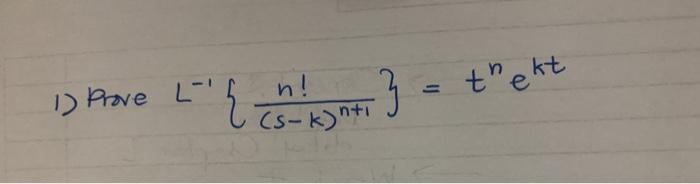 1) Prove L⁻¹ { n! / (s-k)ⁿ⁺¹ } = tⁿ eᵏᵗ